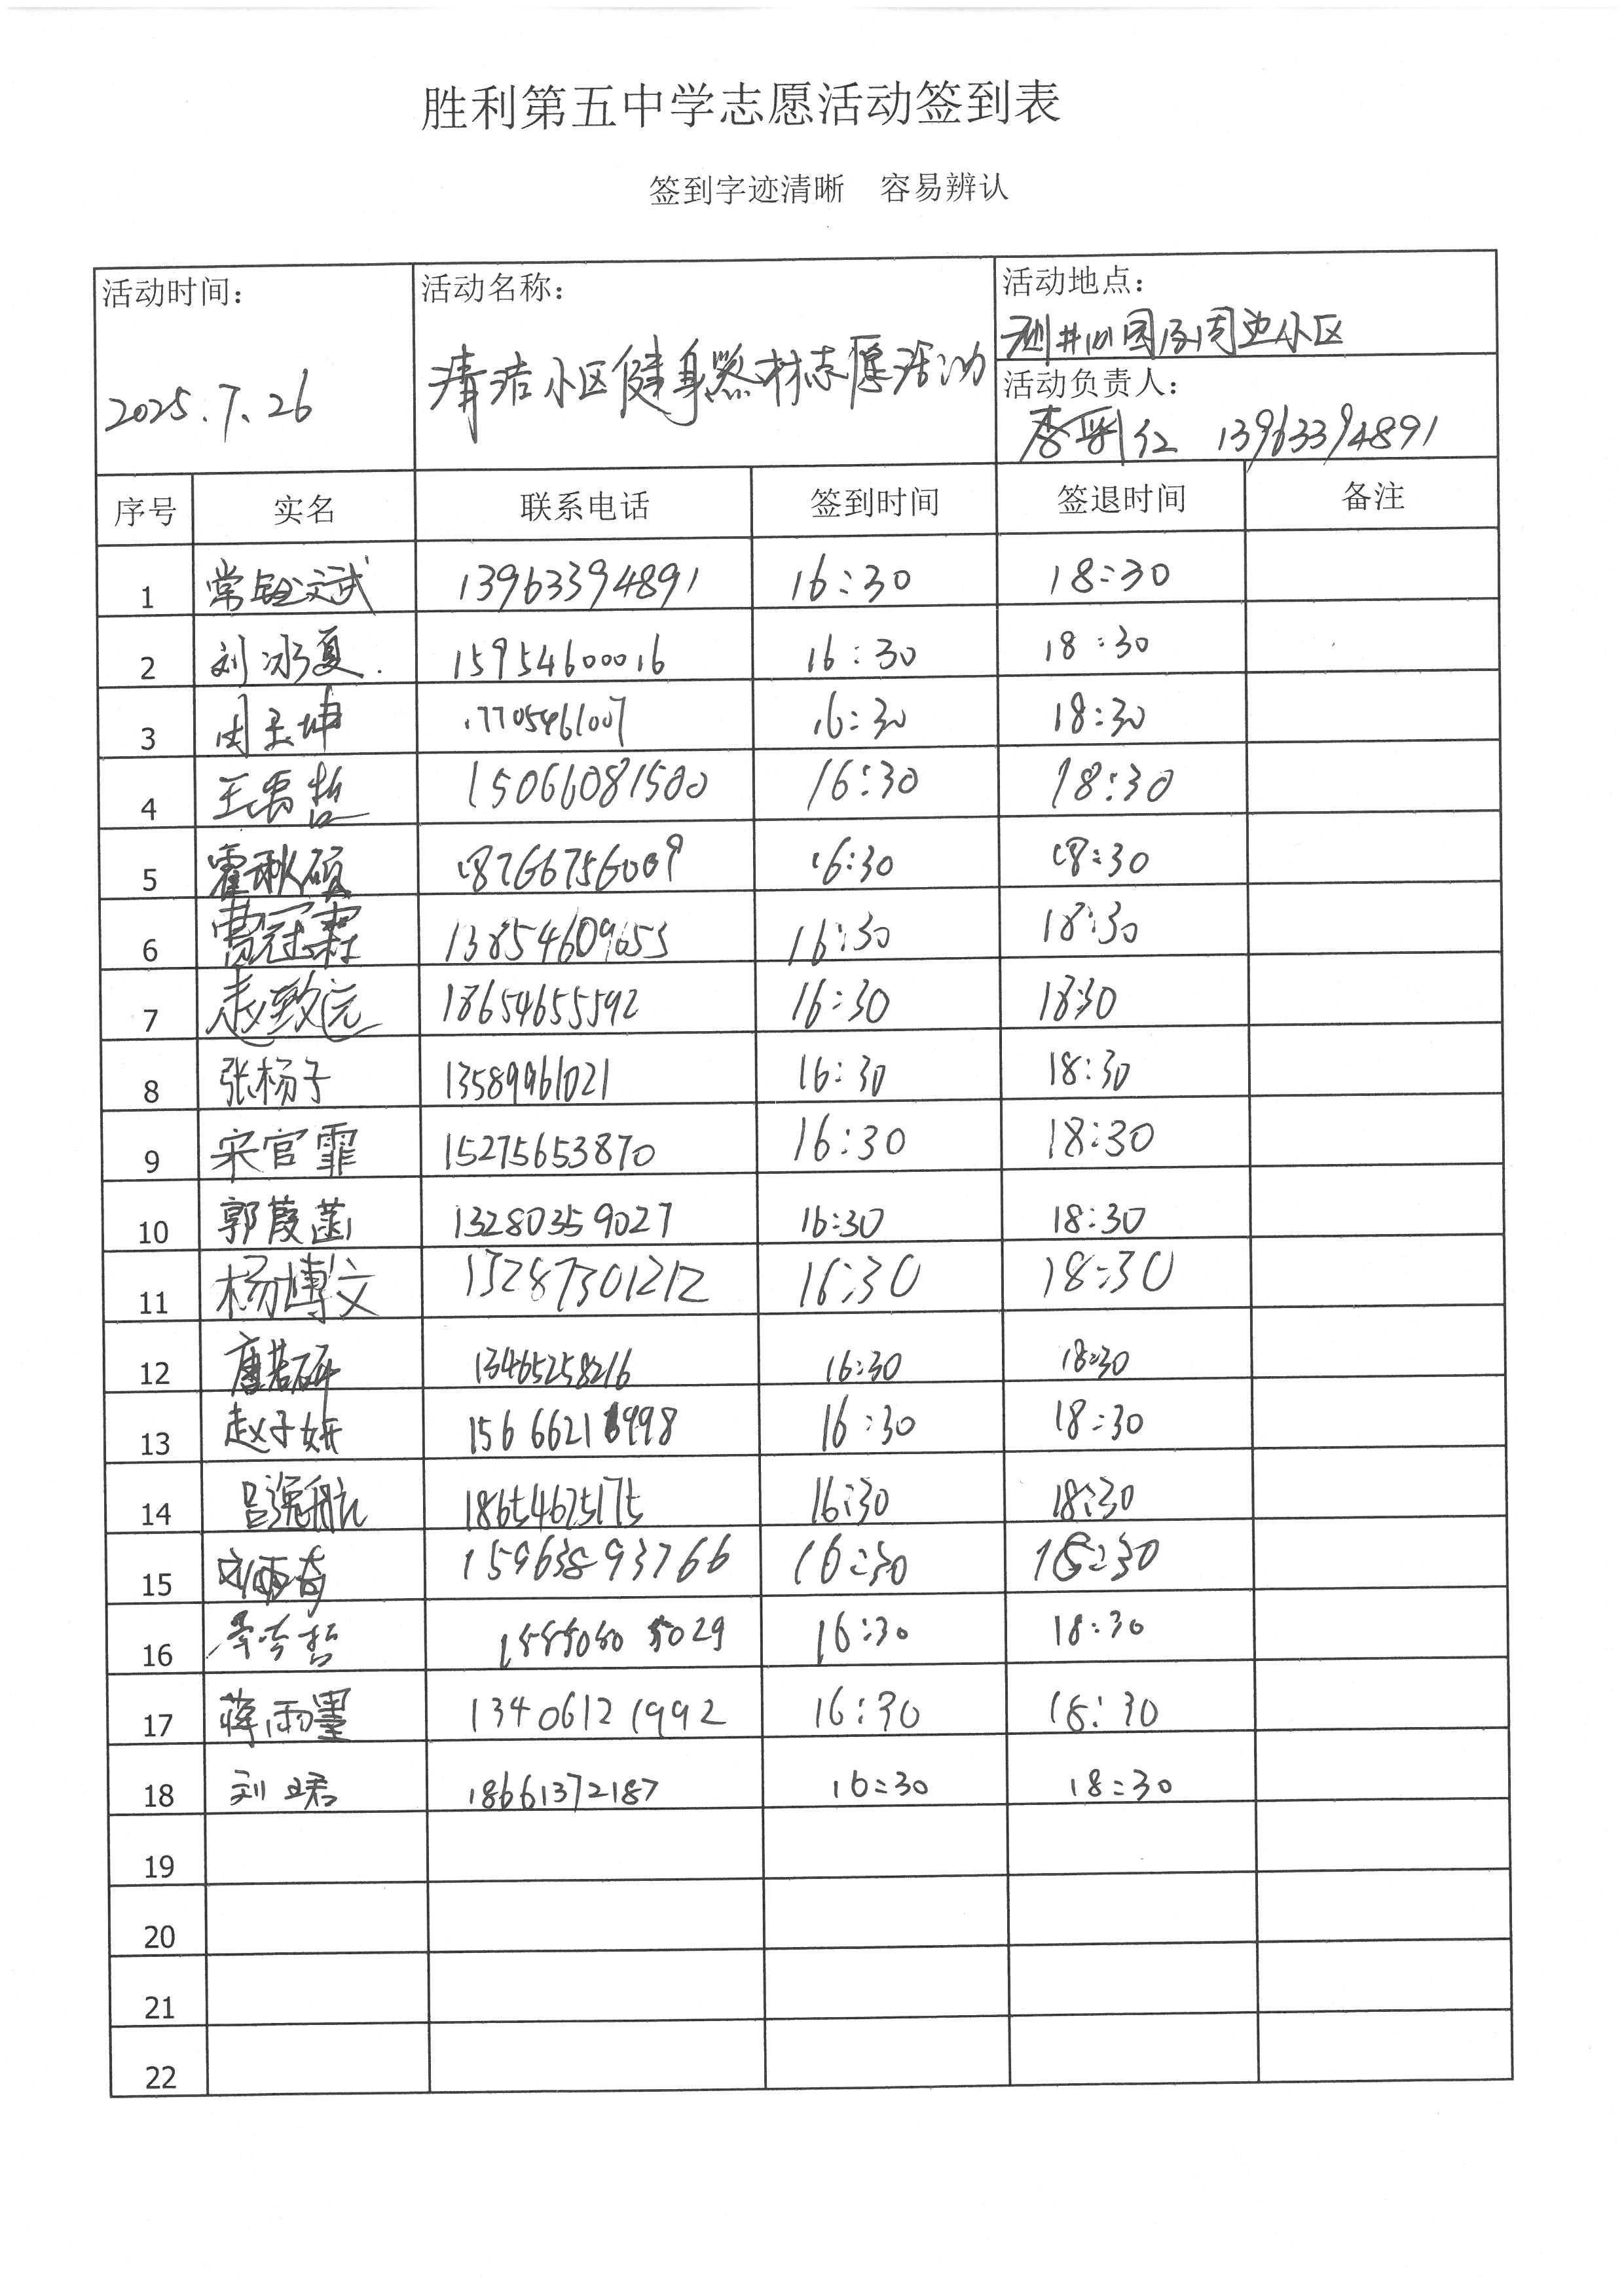 胜利第五中学志愿活动签到表
签到字迹清晰 容易辨认
活动时间： 活动名称： 活动地点：
测井公园及周边小区
2025.7.26 清洁小区健身器材志愿活动
活动负责人：
13963394891
序号 实名 联系电话 签到时间 签退时间 备注
1 常钰斌 13963394891 16:30 18:30
2 刘冰夏 15954600016 16:30 18:30
3 17705461007 16:30 18:30
4 王禹哲 15066081500 16:30 18:30
5 霍秋硕 18766756009 16:30 18:30
6 13854609653 16:30 18:30
7 赵致远 18654655592 16:30 18:30
8 张杨子 13589961021 16:30 18:30
9 宋官霏 15275653870 16:30 18:30
10 郭葭菡 13280359027 16:30 18:30
11 杨博文 15287301212 16:30 18:30
12 唐若研 13465258216 16:30 18:30
13 赵子妍 16:30 18:30
14 吕逸航 18654625175 16:30 18:30
15 刘雨奇 15963893766 16:30 18:30
16 16:30 18:30
17 蒋雨墨 13406121992 16:30 18:30
18 刘珺 18661372187 16:30 18:30
19
20
21
22